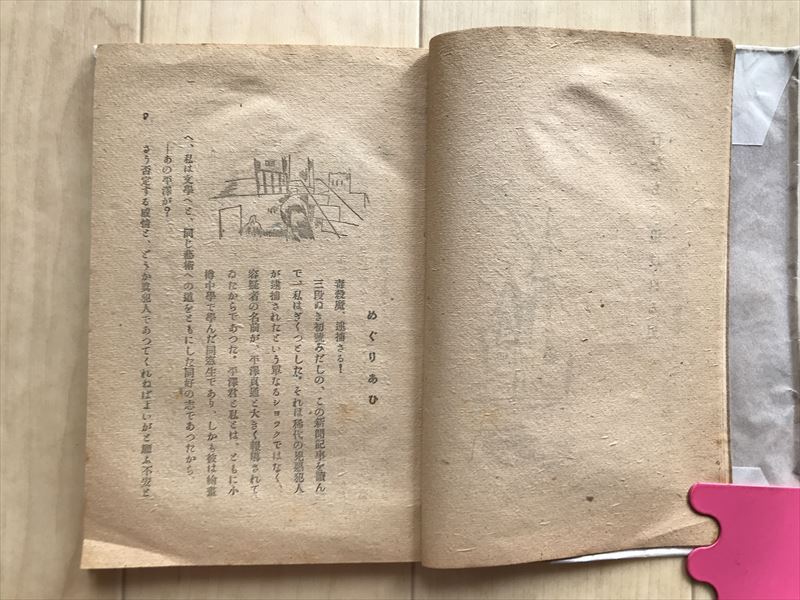 めぐりあひ
毒殺魔、逮捕さる！
三段ぬき初號みだしの、この新聞記事を讀ん
で、私はぎくつとした。それは稀代の兇惡犯人
が逮捕されたという單なるショックではなく、
容疑者の名前が、平澤貞道と大きく報導されて
ゐたからであつた。平澤君と私とは、ともに小
樽中學で學んだ同窓生であり、しかも彼は繪畫
へ、私は文學へと、同じ藝術への道をともにした同好の志であつたから。
―あの平澤が？
さう否定する感情と、どうか眞犯人であつてくれねばよいがと願ふ不安と
9